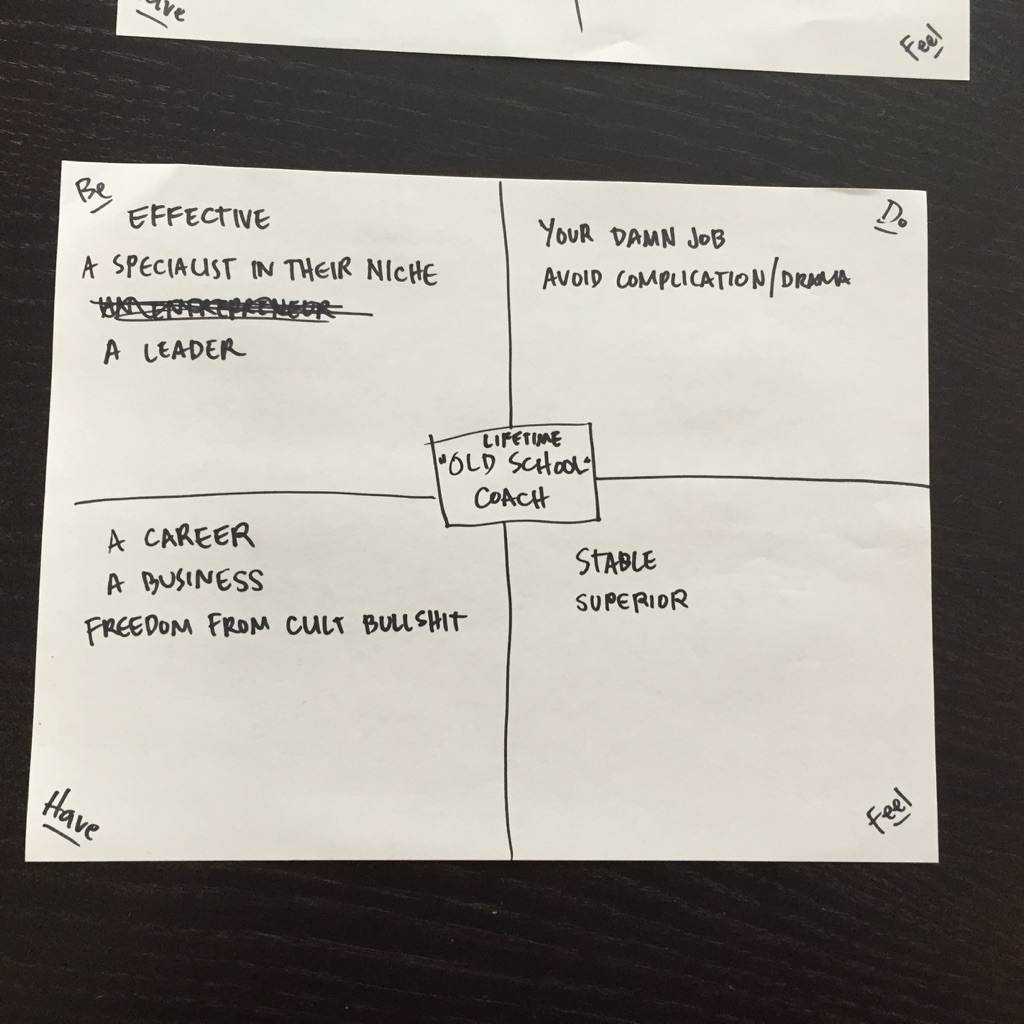 Feel
Be
EFFECTIVE
A SPECIALIST IN THEIR NICHE
A LEADER
Do
YOUR DAMN JOB
AVOID COMPLICATION/DRAMA
LIFETIME
"OLD SCHOOL"
COACH
A CAREER
A BUSINESS
FREEDOM FROM CULT BULLSHIT
Have
STABLE
SUPERIOR
Feel